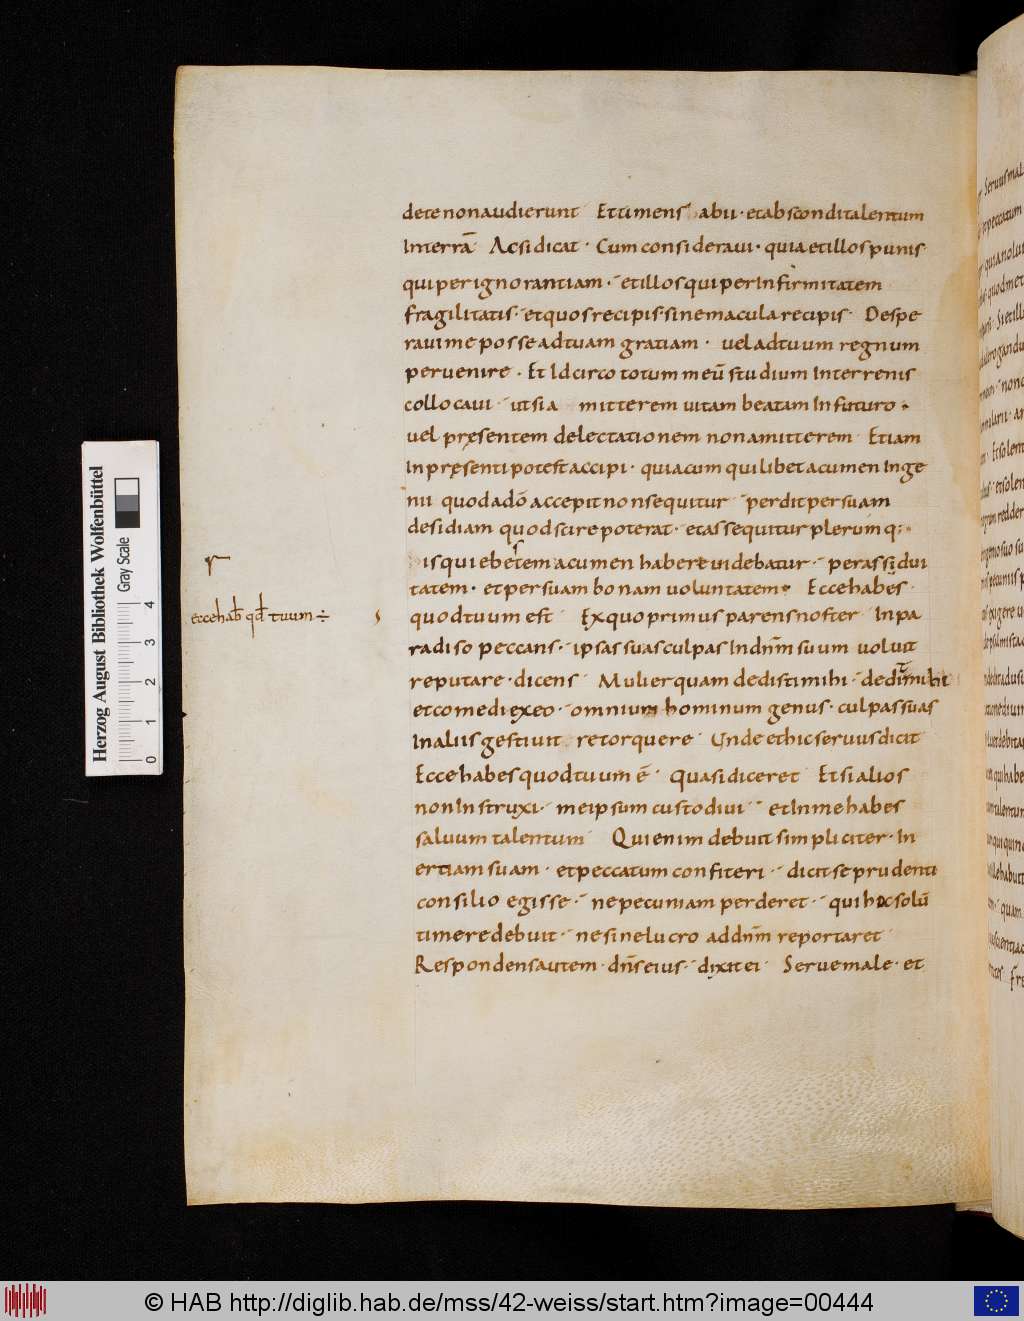 de te non audierunt Et timens abii · et abscondi talentum
In terrā Ac si dicat · Cum consideravi · quia et illos punis
qui per ignorantiam · et illos qui per Infirmitatem
fragilitatis · et quos recipis · sine macula recipis · Despe
ravi me posse ad tuam gratiam · vel ad tuum regnum
pervenire · Et Idcirco totum meū studium In terrenis
collocavi · ut si a mitterem vitam beatam In futuro ·
vel pręsentem delectationem non amitterem Etiam
In pręsenti potest accipi · quia cum quilibet acumen Inge
nii quod a dō accepit non sequitur · perdit per suam
desidiam quod scire poterat · et assequitur plerumq; ·
is qui ebetem acumen habere videbatur · per assidui
tatem · et per suam bonam voluntatem · Ecce habes ·
ecce hab& qđ tuum ÷
quod tuum est Ex quo primus parens noster In pa
radiso peccans · ipsas suas culpas In dn̄m suum voluit
reputare · dicens Mulier quam dedisti mihi · dedit mihi
et comedi ex eo · omnium hominum genus · culpas suas
In aliis gestivit retorquere Unde et hic servus dicit
Ecce habes quod tuum ē · quasi diceret Et si alios
non Instruxi · meipsum custodivi · et In me habes
salvum talentum Qui enim debuit simpliciter · In
ertiam suam · et peccatum confiteri · dicit se prudenti
consilio egisse · ne pecuniam perderet · qui hoc solū
timere debuit · ne sine lucro ad dn̄m reportaret
Respondens autem · dn̄s eius · dixit ei · Serve male · et
© HAB http://diglib.hab.de/mss/42-weiss/start.htm?image=00444
Herzog August Bibliothek Wolfenbüttel
Gray Scale
0 1 2 3 4